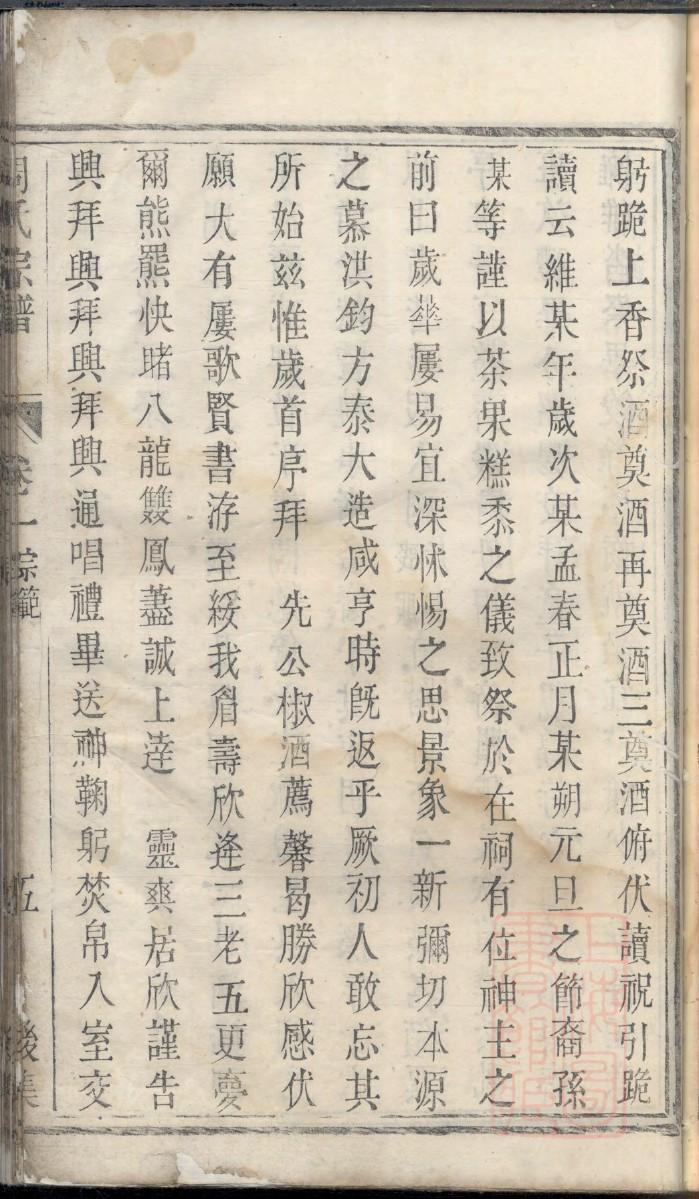 躬跪上香祭酒奠酒再奠酒三奠酒俯伏讀祝引跪
讀云維某年歲次某孟春正月某朔元旦之節裔孫
某等謹以茶果糕黍之儀致祭於在祠有位神主之
前曰歲華屢易宜深怵惕之思景象一新彌切本源
之慕洪鈞方泰大造咸亨時旣返乎厥初人敢忘其
所始茲惟歲首序拜　先公椒酒薦馨曷勝欣感伏
願大有屢歌賢書洊至綏我眉壽欣逢三老五更夢
爾熊羆快睹八龍雙鳳藎誠上達　靈爽居欣謹告
興拜興拜興拜興通唱禮畢送神鞠躬焚帛入室交
周氏宗譜　卷一　宗範　五　後集